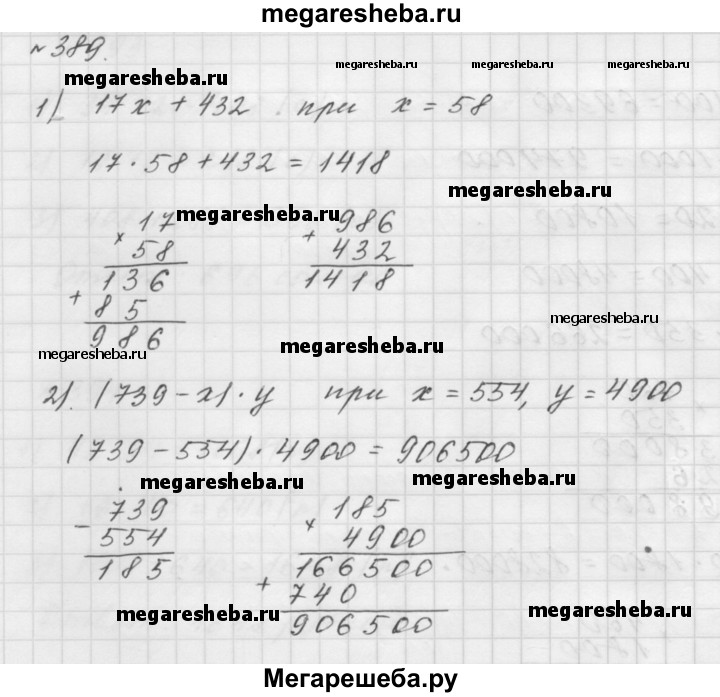 megaresheba.ru
№389.
megaresheba.ru megaresheba.ru megaresheba.ru
1) 17x + 432 при x = 58
17·58+432 = 1418
megaresheba.ru
megaresheba.ru
17 986
× 58 + 432
136 1418
+ 85
986
megaresheba.ru
megaresheba.ru
megaresheba.ru
2). (739 - x)·y при x = 554, y = 4900
(739 - 554)·4900 = 906500
megaresheba.ru megaresheba.ru
739 185
- 554 × 4900
185 166500
+ 740
megaresheba.ru megaresheba.ru
906500
Мегарешеба.ру